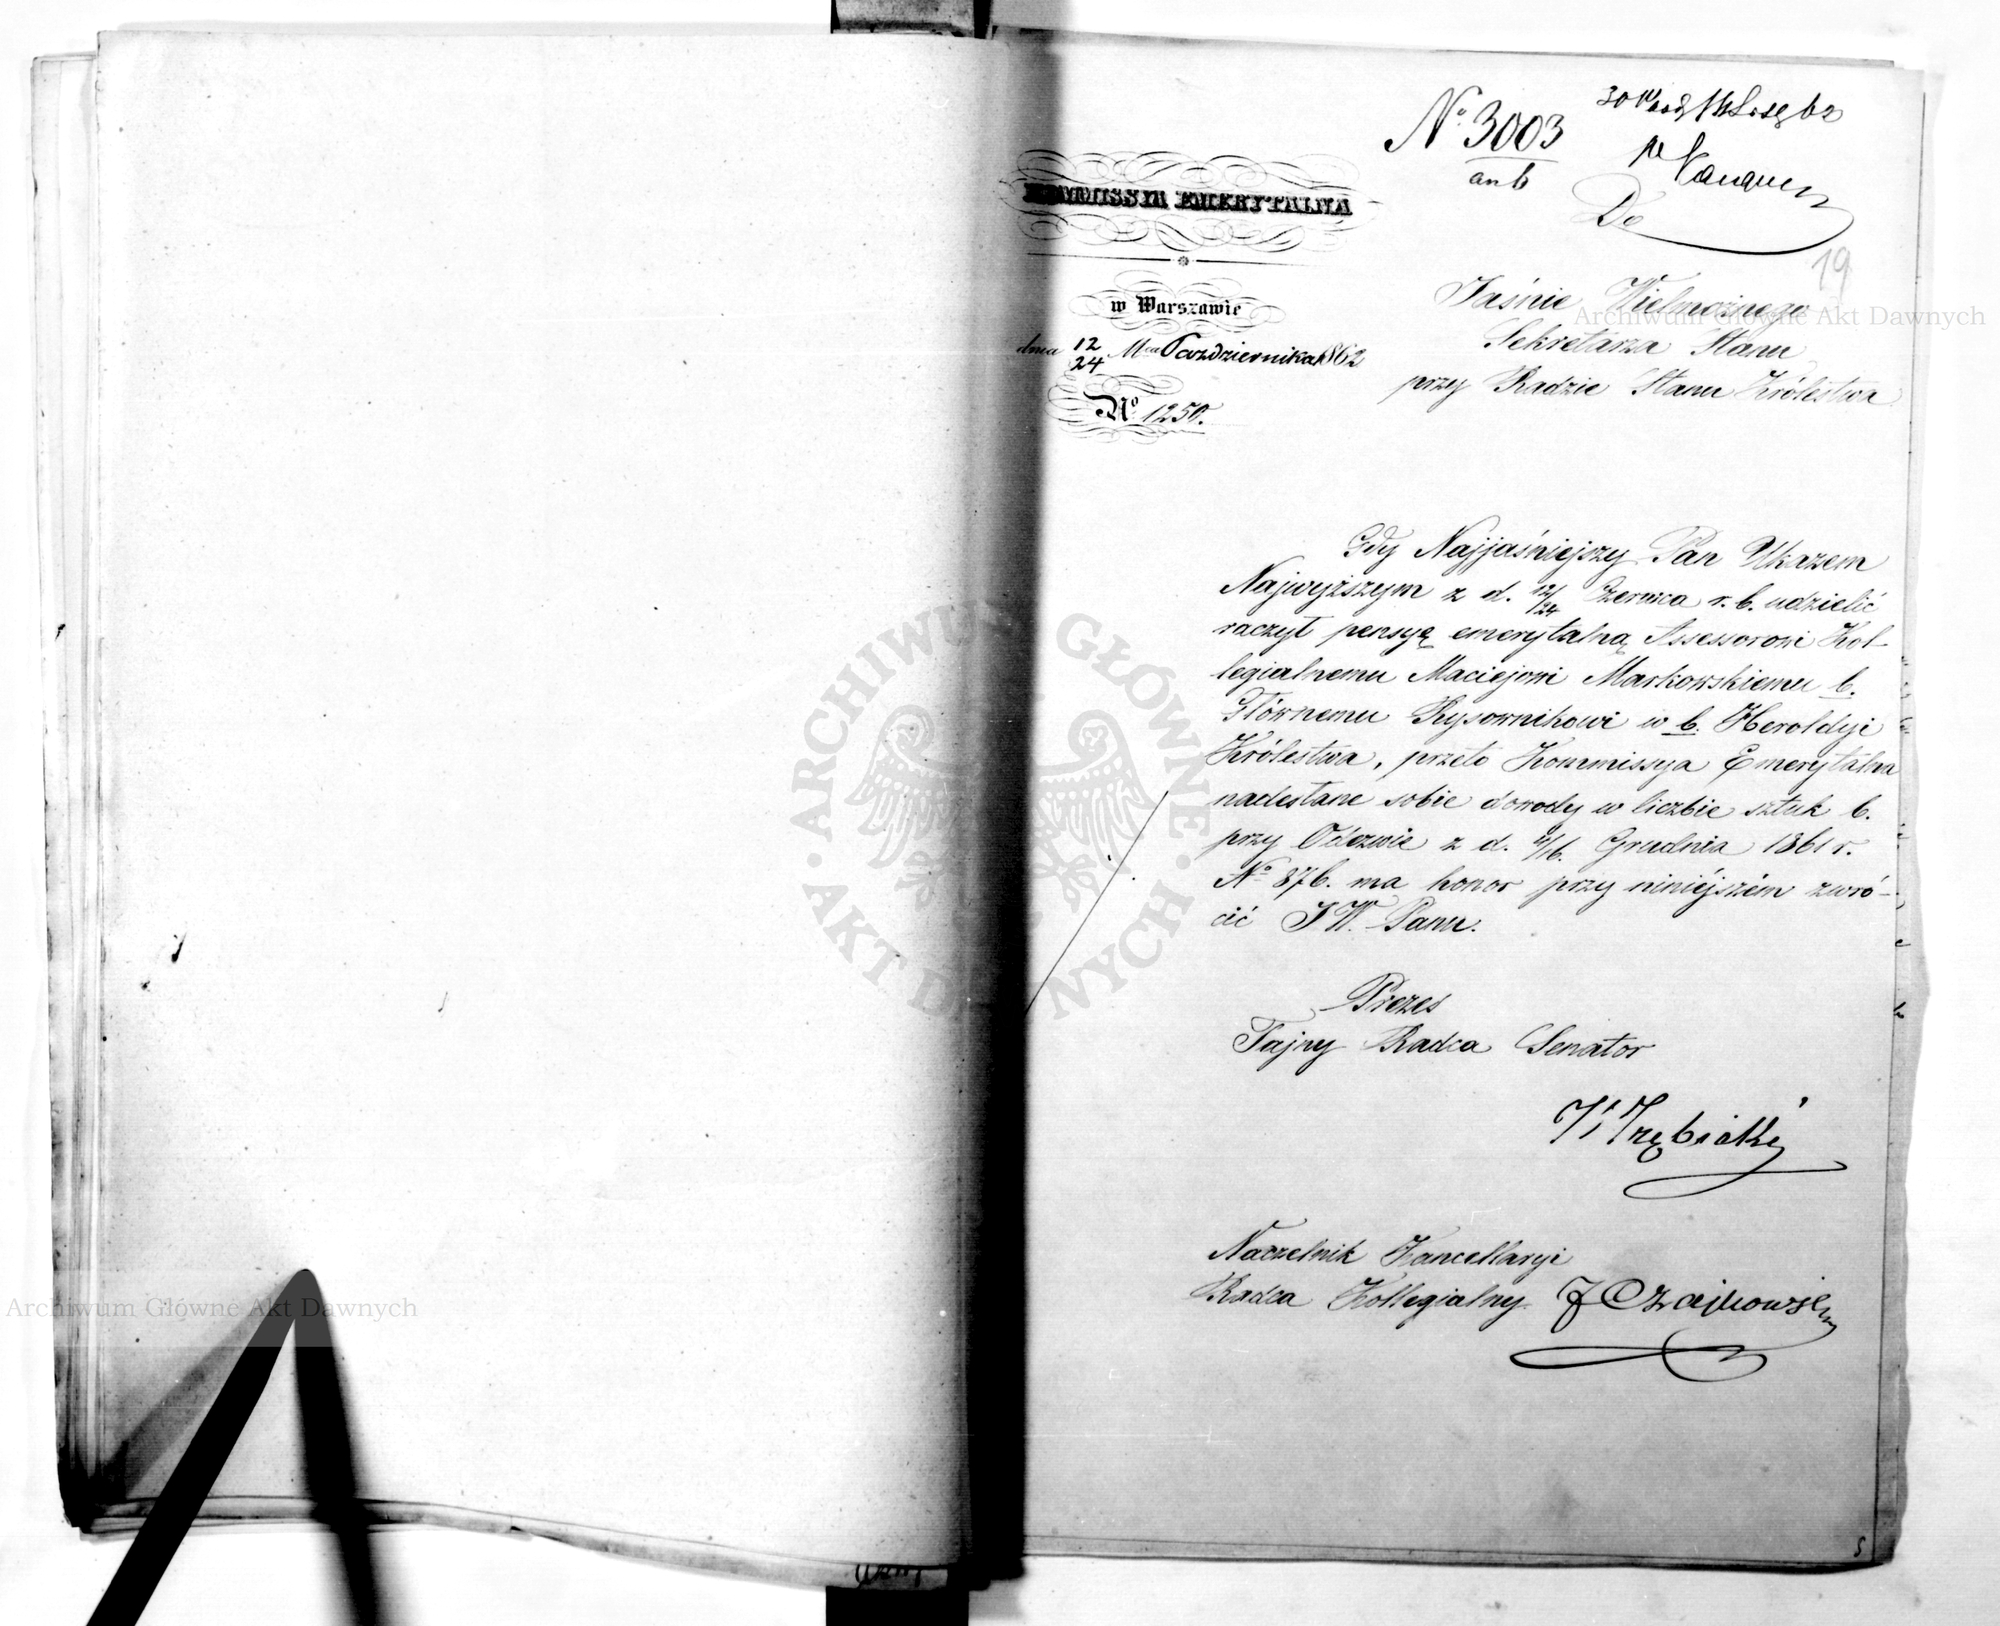 No 3003
an b
Do
19
KOMMISSYA EMERYTALNA
w Warszawie
dnia 12/24 Mca Października 1862
No 1250.
Jaśnie Wielmożnego
Sekretarza Stanu
przy Radzie Stanu Królestwa
Gdy Najjaśniejszy Pan Ukazem
Najwyższym z d. 12/24 Czerwca r. b. udzielić
raczył pensyą emerytalną Assessorowi Kol-
legialnemu Maciejowi Markowskiemu b.
Głównemu Rysownikowi w b. Heroldyi
Królestwa, przeto Kommissya Emerytalna
nadesłane sobie dowody w liczbie sztuk 6.
przy Odezwie z d. 4/16. Grudnia 1861 r.
No 876. ma honor przy niniéjszém zwró-
cić JW. Panu.
Prezes
Tajny Radca Senator
Naczelnik Kancellaryi
Radca Kollegialny J Czajkowski
Archiwum Główne Akt Dawnych
ARCHIWUM GŁÓWNE AKT DAWNYCH
Archiwum Główne Akt Dawnych